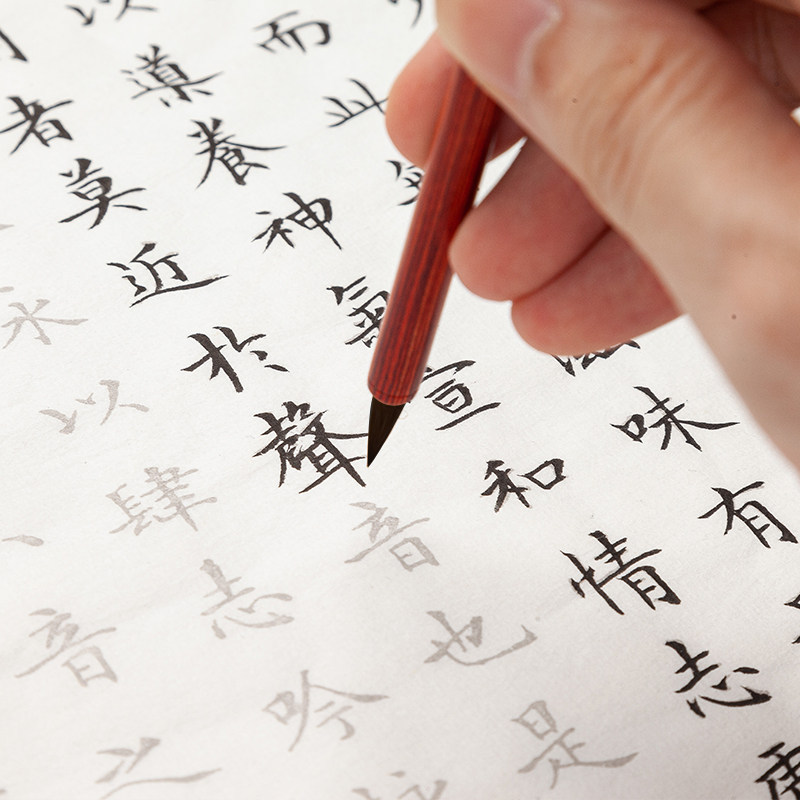 而此
滋味有
以導養神氣宣和情志處
者莫近於聲音也是
永以肆志吟
音之